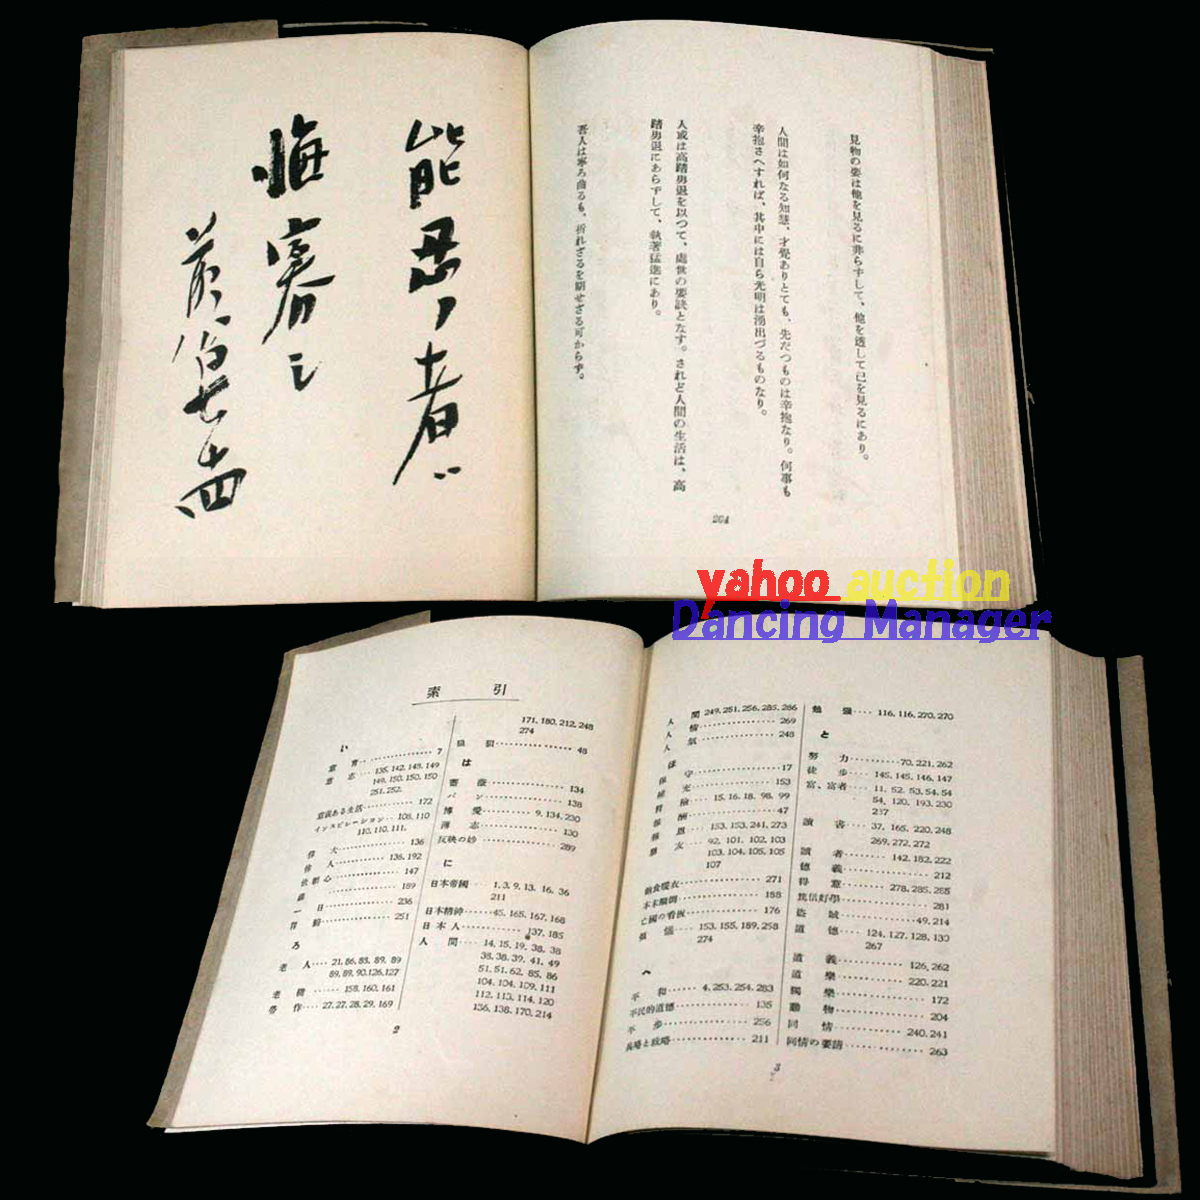 能忍ノ者ハ
悔寡シ
蘇翁七十四
見物の要は他を見るに非らずして、他を透して己を見るにあり。
人間は如何なる知慧、才覺ありとても、先だつものは辛抱なり。何事も
辛抱さへすれば、其中には自ら光明は湧出づるものなり。
人或は高踏勇退を以つて、處世の要訣となす。されど人間の生活は、高
踏勇退にあらずして、執著猛進にあり。
吾人は寧ろ曲るも、折れざるを期せざる可からず。
204
yahoo auction
Dancing Manager
索引
い
7
意志 135, 142, 143, 149
149, 150, 150, 150
251, 252.
意義ある生活 172
インスピレーション 108, 110
110, 110, 111.
偉大 136
偉人 136, 192
依頼心 147
189
一日 236
251
ろ
老人 21, 86, 83, 89, 89
89, 89, 90, 126, 127
老樹 158, 160, 161
勞作 27, 27, 28, 29, 169
2
171, 180, 212, 248
274
48
は
薔薇 134
パン 138
博愛 9, 134, 230
薄志 130
反映の妙 289
に
日本帝國 1, 3, 9, 13, 16, 36
211
日本精神 45, 165, 167, 168
日本人 137, 185
人間 14, 15, 19, 38, 38
38, 38, 39, 41, 49
51, 51, 62, 85, 86
104, 104, 109, 111
112, 113, 114, 120
136, 138, 170, 214
人間 249, 251, 256, 285, 286
人情 269
人氣 248
ほ
保守 17
補充 153
冒險 15, 16, 18, 98, 99
報酬 47
報恩 153, 153, 241, 273
朋友 92, 101, 102, 103
103, 104, 105, 105
107
飽食暖衣 271
本末顚倒 188
亡國の看板 176
153, 155, 189, 258
274
へ
平和 4, 253, 254, 283
平民的道德 135
平步 256
兵略と政略 211
勉强 116, 116, 270, 270
と
努力 70, 221, 262
徒步 145, 145, 146, 147
富、富者 11, 52, 53, 54, 54
54, 120, 193, 230
237
讀書 37, 165, 220, 248
269, 272, 272
讀者 142, 182, 222
德義 212
得意 278, 285, 285
篤信好學 281
盜賊 49, 214
道德 124, 127, 128, 130
267
道義 126, 262
道樂 220, 221
獨樂 172
動物 204
同情 240, 241
同情の要請 263
3